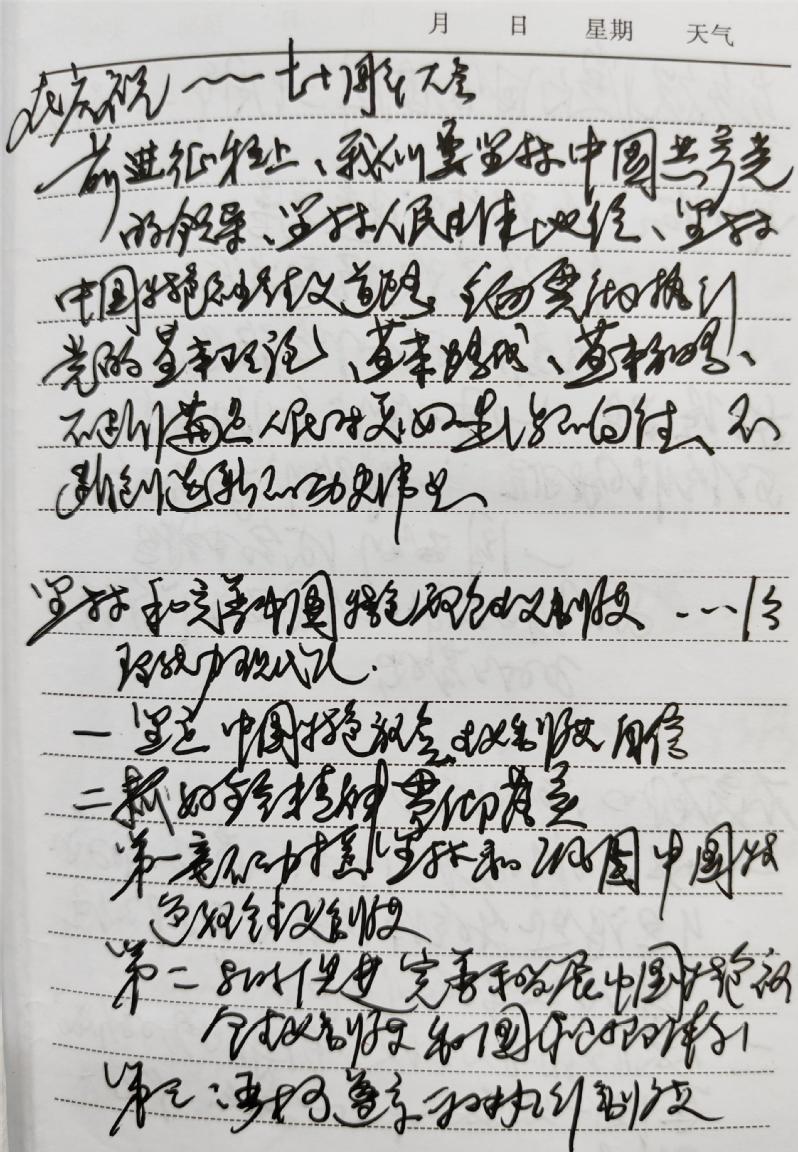 月 日 星期 天气
在庆祝~~七十周年大会
前进征程上、我们要坚持中国共产党
的领导、坚持人民主体地位、坚持
中国特色社会主义道路、全面贯彻执行
党的基本理论、基本路线、基本方略、
不断满足人民对美好生活的向往、不
断创造新的功大伟业
坚持和完善中国特色社会主义制度……治
理能力现代化.
一 坚定中国特色社会主义制度自信
二 抓好全会精神贯彻落实
第一 毫不动摇坚持和巩固中国特
色社会主义制度
第二 与时俱进完善和发展中国特色社
会主义制度和国家治理体系
第三:严格遵守和执行制度